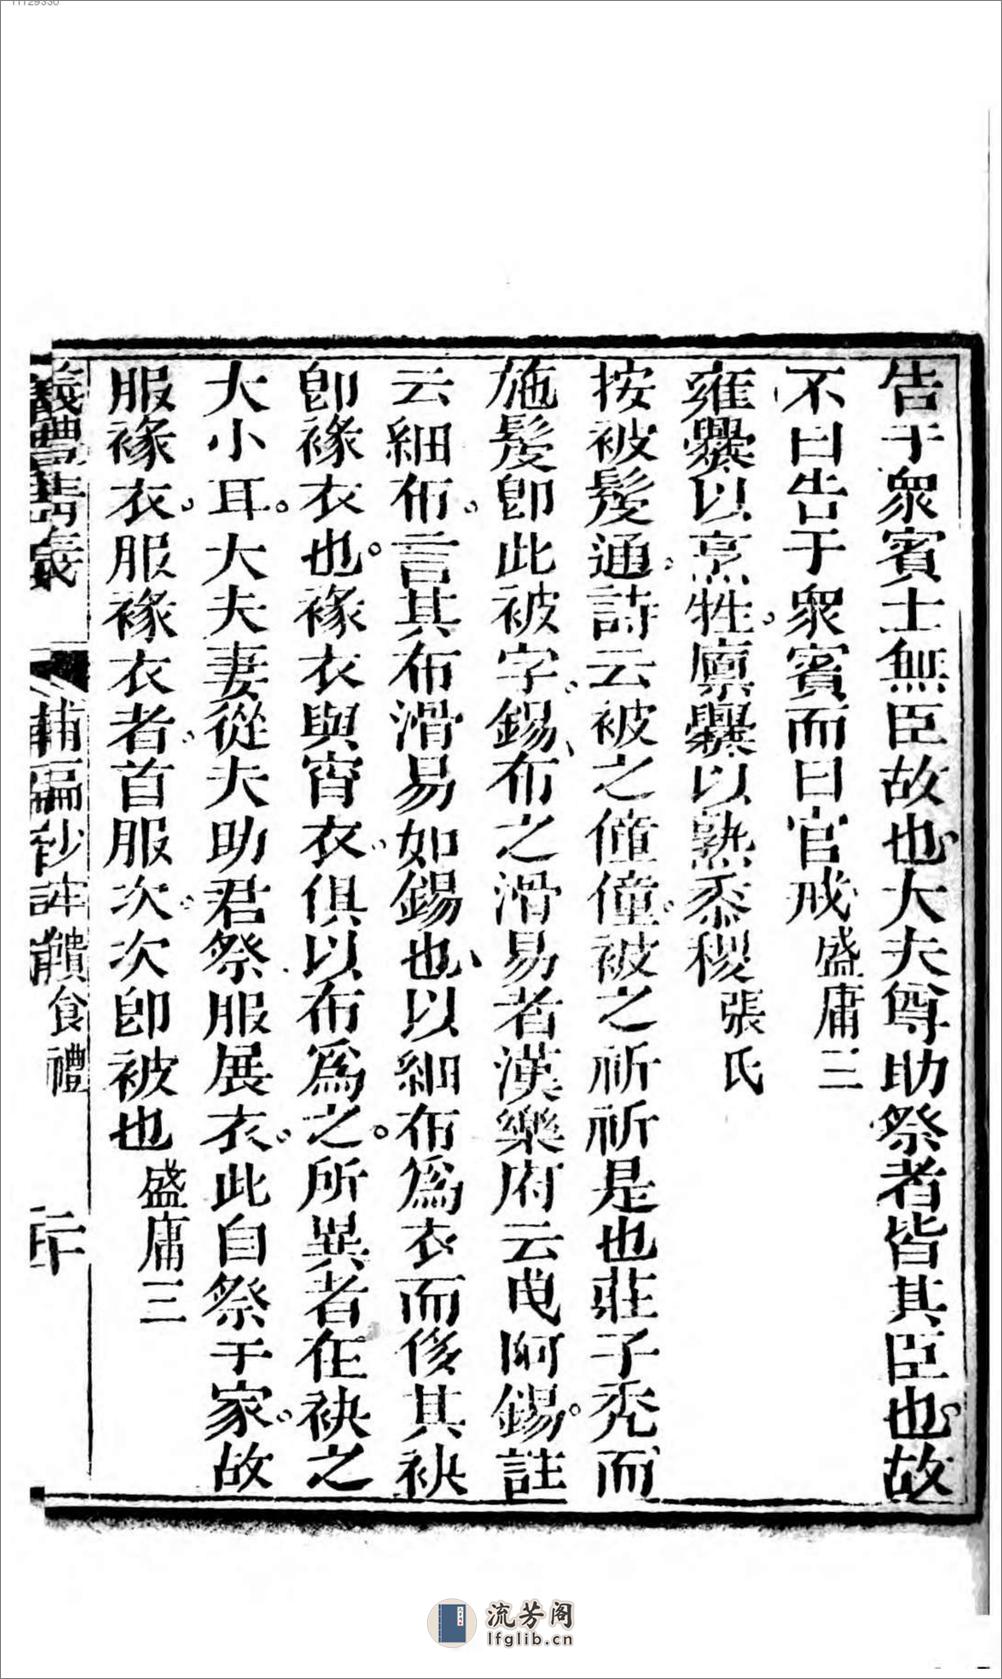 告于衆賓士無臣故也大夫尊助祭者皆其臣也故
不曰告于衆賓而曰官戒盛庸三
雍爨以烹牲廪爨以熟黍稷張氏
按被髲通詩云被之僮僮被之祈祈是也莊子禿而
施髲卽此被字錫布之滑易者漢樂府云曳阿錫註
云細布言其布滑易如錫也以細布爲衣而侈其袂
卽褖衣也褖衣與宵衣俱以布爲之所異者在袂之
大小耳大夫妻從夫助君祭服展衣此自祭于家故
服褖衣服褖衣者首服次次卽被也盛庸三
饋食禮
流芳阁
lfglib.cn